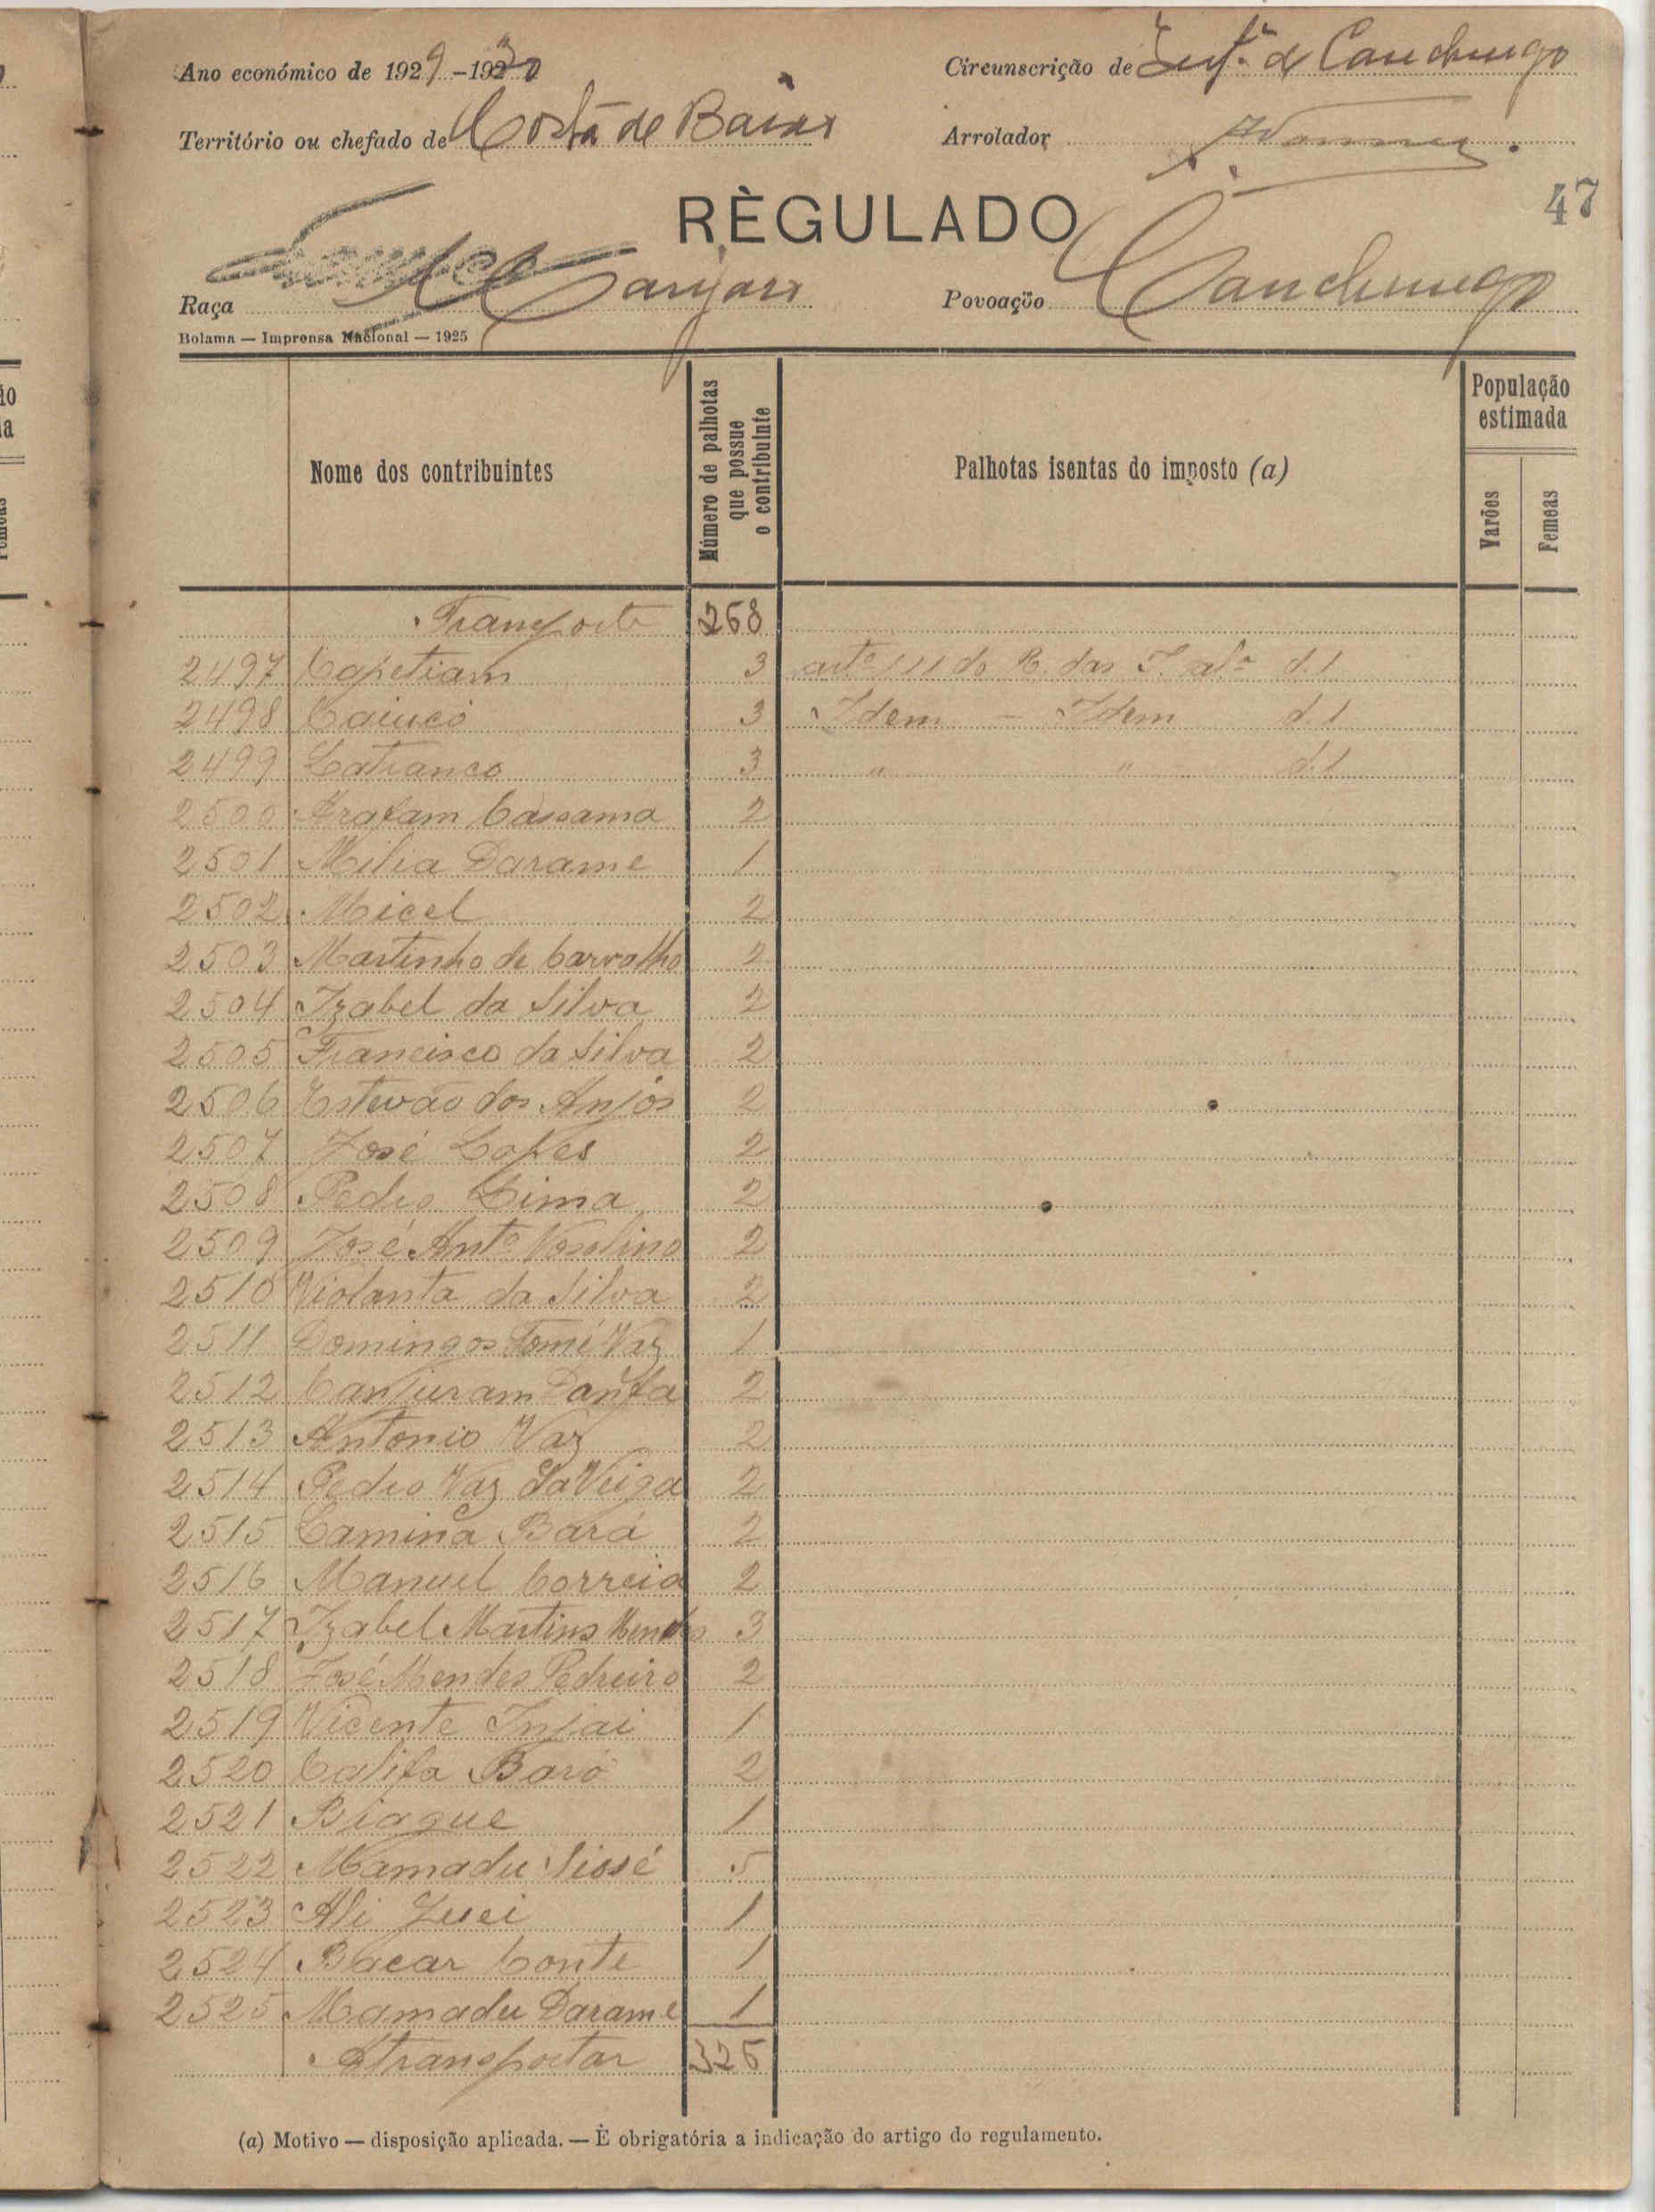 Ano económico de 1929-1930
Circunscrição de Canchungo
Território ou chefado de Costa de Baixo
Arrolador
47
RÈGULADO
Raça
Povoação Canchungo
Bolama — Imprensa Nacional — 1925
Nome dos contribuintes
Número de palhotas que possue o contribuinte
Palhotas isentas do imposto (a)
População estimada
Varões
Femeas
Transporte 268
2497 Capetiam 3 d.1
2498 Caiucó 3 Idem — Idem d.1
2499 Catranco 3 " " d.1
2500 Cassama 2
2501 Darame 1
2502 Micel 2
2503 Martinho de Carvalho 2
2504 Izabel da Silva 2
2505 Francisco da Silva 2
2506 Estevão dos Anjos 2
2507 José Lopes 2
2508 Pedro Lima 2
2509 José Antº 2
2510 Violanta da Silva 2
2511 Domingos Tomé Vaz 1
2512 Canjuram Danfa 2
2513 Antonio Vaz 2
2514 Pedro Vaz da Veiga 2
2515 Lamina Bará 2
2516 Manuel Correia 2
2517 Izabel Martins Mendes 3
2518 José Mendes Pedreiro 2
2519 Vicente Injai 1
2520 Califa Baró 2
2521 Biague 1
2522 Mamadu Sissé 5
2523 Ali 1
2524 Bacar Conte 1
2525 Mamadu Darame 1
A transportar 325
(a) Motivo — disposição aplicada. — È obrigatória a indicação do artigo do regulamento.